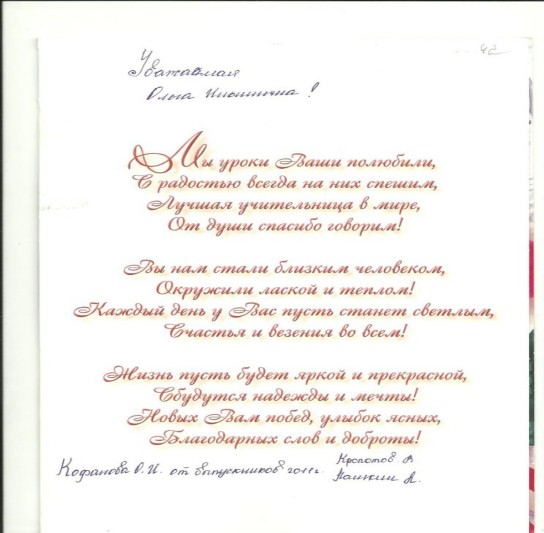 42
Уважаемая
Ольга Ильинична!
Мы уроки Ваши полюбили,
С радостью всегда на них спешим,
Лучшая учительница в мире,
От души спасибо говорим!
Вы нам стали близким человеком,
Окружили лаской и теплом!
Каждый день у Вас пусть станет светлым,
Счастья и везения во всем!
Жизнь пусть будет яркой и прекрасной,
Сбудутся надежды и мечты!
Новых Вам побед, улыбок ясных,
Благодарных слов и доброты!
О. И. от выпускников 2011г.
Кропотов В
А.